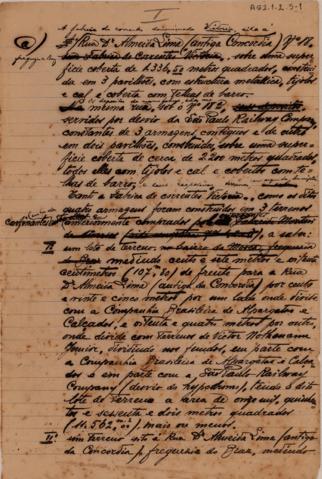 I
AG2.1.2.5-1
A fabrica de correntes denominada Victoria, sita á
Rua Dr. Almeida Lima (antiga Concordia) Nº 18,
sobre uma super
ficie coberta de metros quadrados,
em 3 pavilhões, com estructura metallica, tijolos
e cal e coberta com telhas de barro.
mesma rua, sob o Nº
servidos por desvio da São Paulo Railway Company
constantes de 3 armazens contiguos e de outro
em dois pavilhões, construido, sobre uma super
ficie coberta de cerca de 2.200 metros quadrados,
todos elles com tijolos e cal e cobertos com te-
lhas de barro,
Tanto a fabrica de correntes como os ditos
quatro armazens foram construidos em 3 terrenos
anteriormente comprados
a saber:
I
um lote de terreno no bairro da Moóca, freguezia
do Braz medindo cento e sete metros e oitenta
centimetros (107,80) de frente para a Rua
Dr. Almeida Lima (antiga da Concordia) por cento
e vinte e cinco metros por um lado onde divide
com a Companhia Brasileira de Alpargatas e
Calçados, e oitenta e quatro metros por outro,
onde divide com terrenos de Victor Nothmann
Junior, dividindo nos fundos, em parte com
a Companhia Brasileira de Alpargatas e Calça
dos e em parte com a São Paulo Railway
Company (desvio do hypodromo), tendo o dito
lote de terreno a area de onze mil, quinhen
tos e sessenta e dois metros quadrados
(11.562,00) mais ou menos.
II
um terreno sito á Rua Dr. Almeida Lima (antiga
da Concordia) freguezia do Braz, medindo